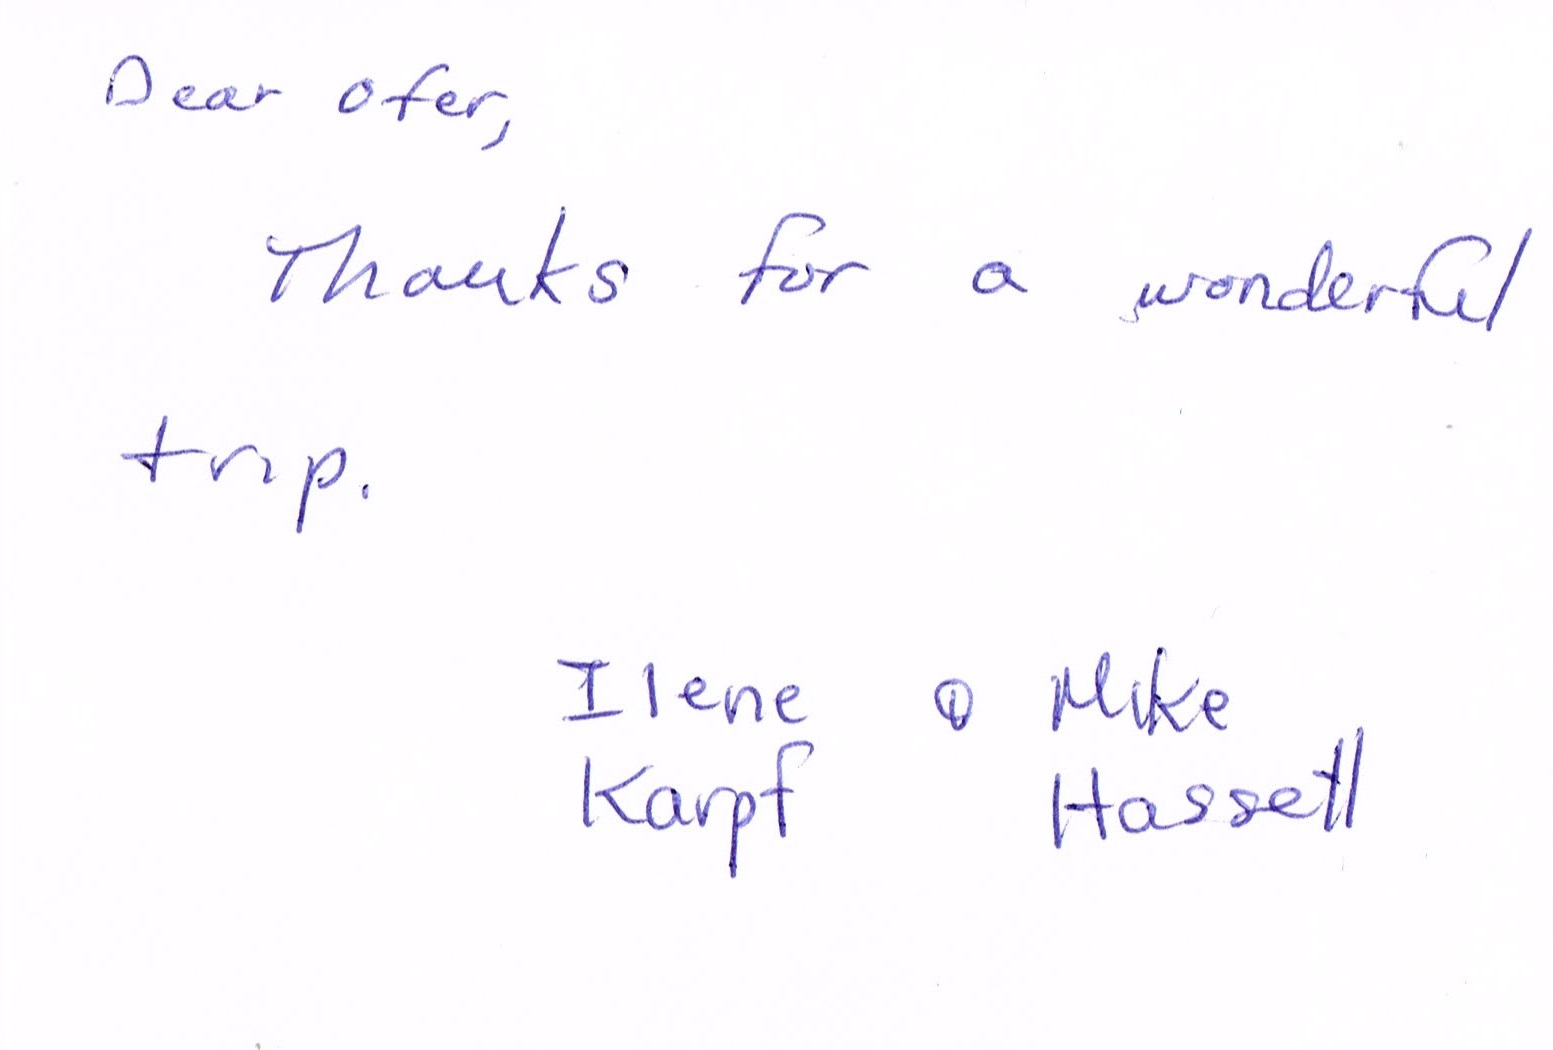 Dear Ofer,
Thanks for a wonderful
trip.
Ilene & Mike
Karpf Hassett